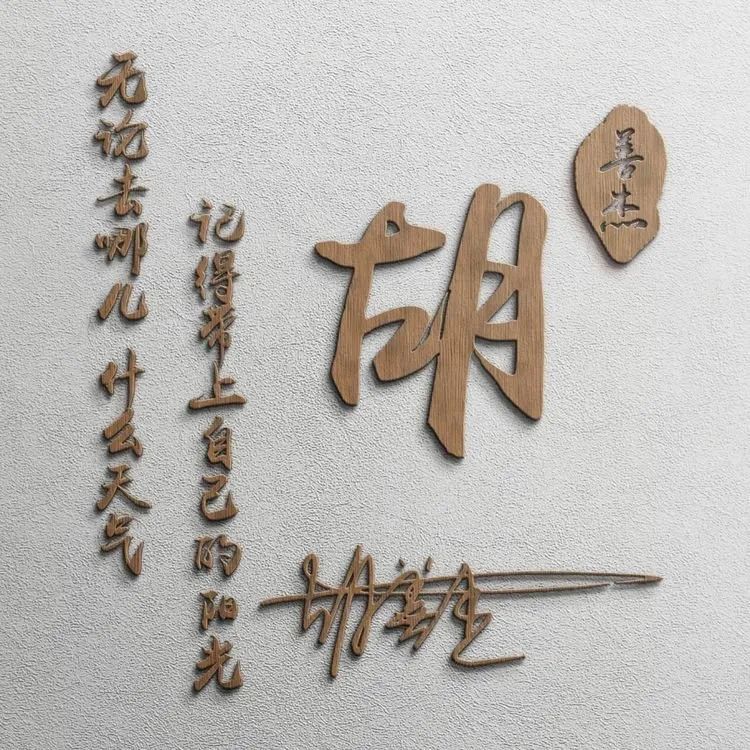 无论去哪儿 什么天气
记得带上自己的阳光
胡
善杰
胡善